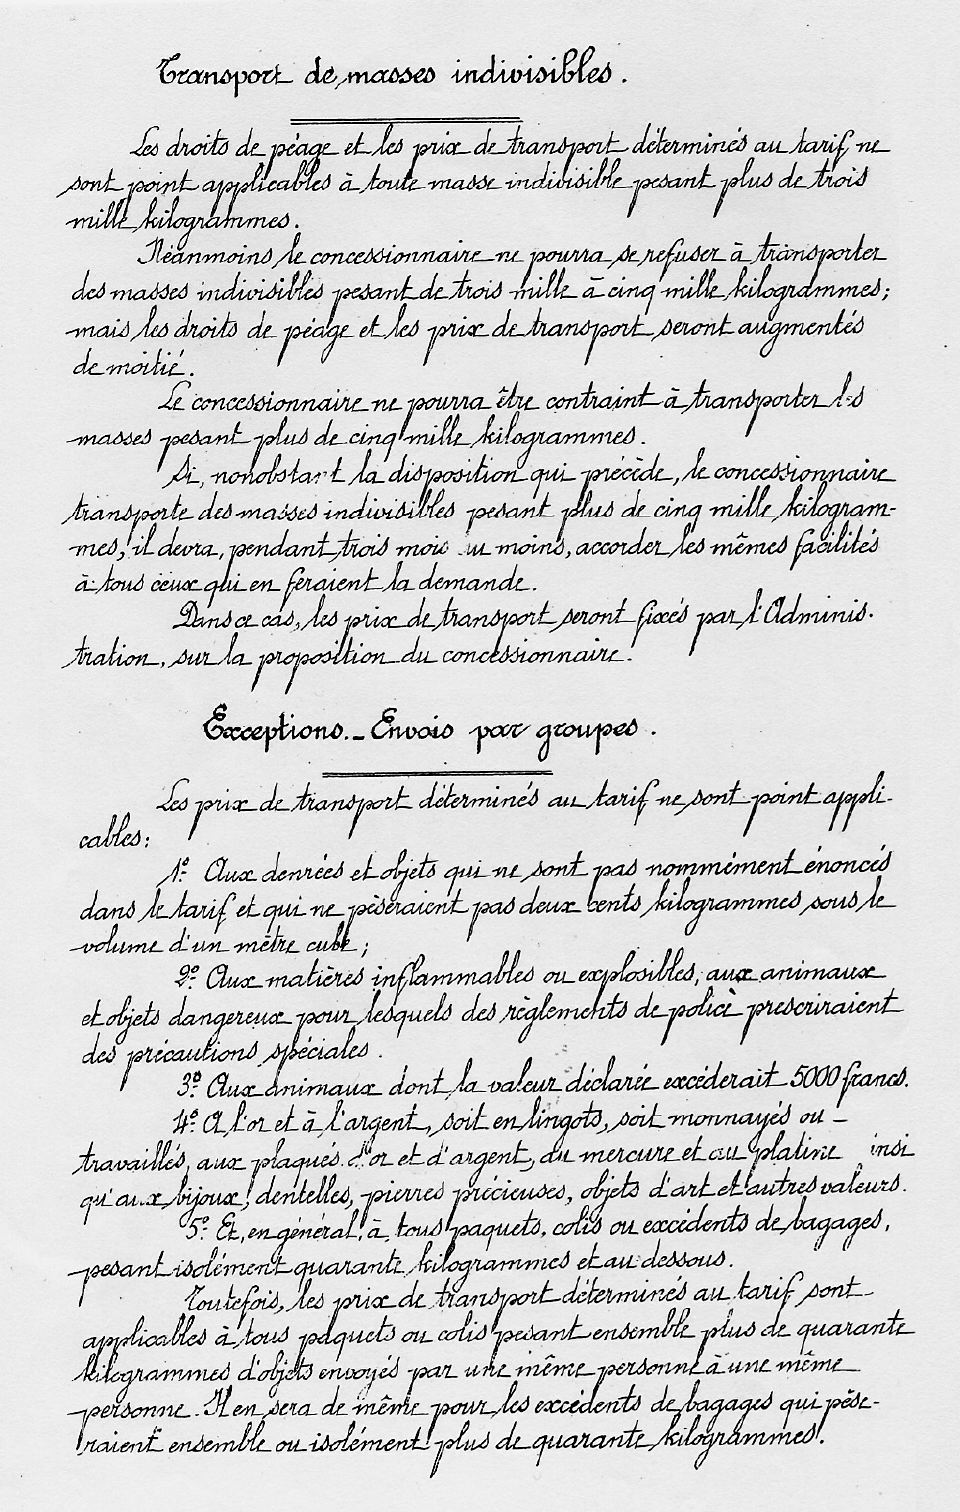 Transport de masses indivisibles.
Les droits de péage et les prix de transport déterminés au tarif ne
sont point applicables à toute masse indivisible pesant plus de trois
mille kilogrammes.
Néanmoins le concessionnaire ne pourra se refuser à transporter
des masses indivisibles pesant de trois mille à cinq mille kilogrammes;
mais les droits de péage et les prix de transport seront augmentés
de moitié.
Le concessionnaire ne pourra être contraint à transporter les
masses pesant plus de cinq mille kilogrammes.
Si, nonobstant la disposition qui précède, le concessionnaire
transporte des masses indivisibles pesant plus de cinq mille kilogram-
mes, il devra, pendant trois mois au moins, accorder les mêmes facilités
à tous ceux qui en feraient la demande.
Dans ce cas, les prix de transport seront fixés par l'Adminis-
tration, sur la proposition du concessionnaire.
Exceptions._Envois par groupes.
Les prix de transport déterminés au tarif ne sont point appli-
cables:
1º. Aux denrées et objets qui ne sont pas nommément énoncés
dans le tarif et qui ne pèseraient pas deux cents kilogrammes sous le
volume d'un mètre cube;
2º. Aux matières inflammables ou explosibles, aux animaux
et objets dangereux pour lesquels des règlements de police prescriraient
des précautions spéciales.
3º. Aux animaux dont la valeur déclarée excéderait 5000 francs.
4º. A l'or et à l'argent, soit en lingots, soit monnayés ou _
travaillés, aux plaqués d'or et d'argent, au mercure et au platine insi
qu'aux bijoux, dentelles, pierres précieuses, objets d'art et autres valeurs.
5º. Et, en général, à tous paquets, colis ou excédents de bagages,
pesant isolément quarante kilogrammes et au dessous.
Toutefois, les prix de transport déterminés au tarif sont
applicables à tous paquets ou colis pesant ensemble plus de quarante
kilogrammes d'objets envoyés par une même personne à une même
personne. Il en sera de même pour les excédents de bagages qui pèse-
raient ensemble ou isolément plus de quarante kilogrammes.